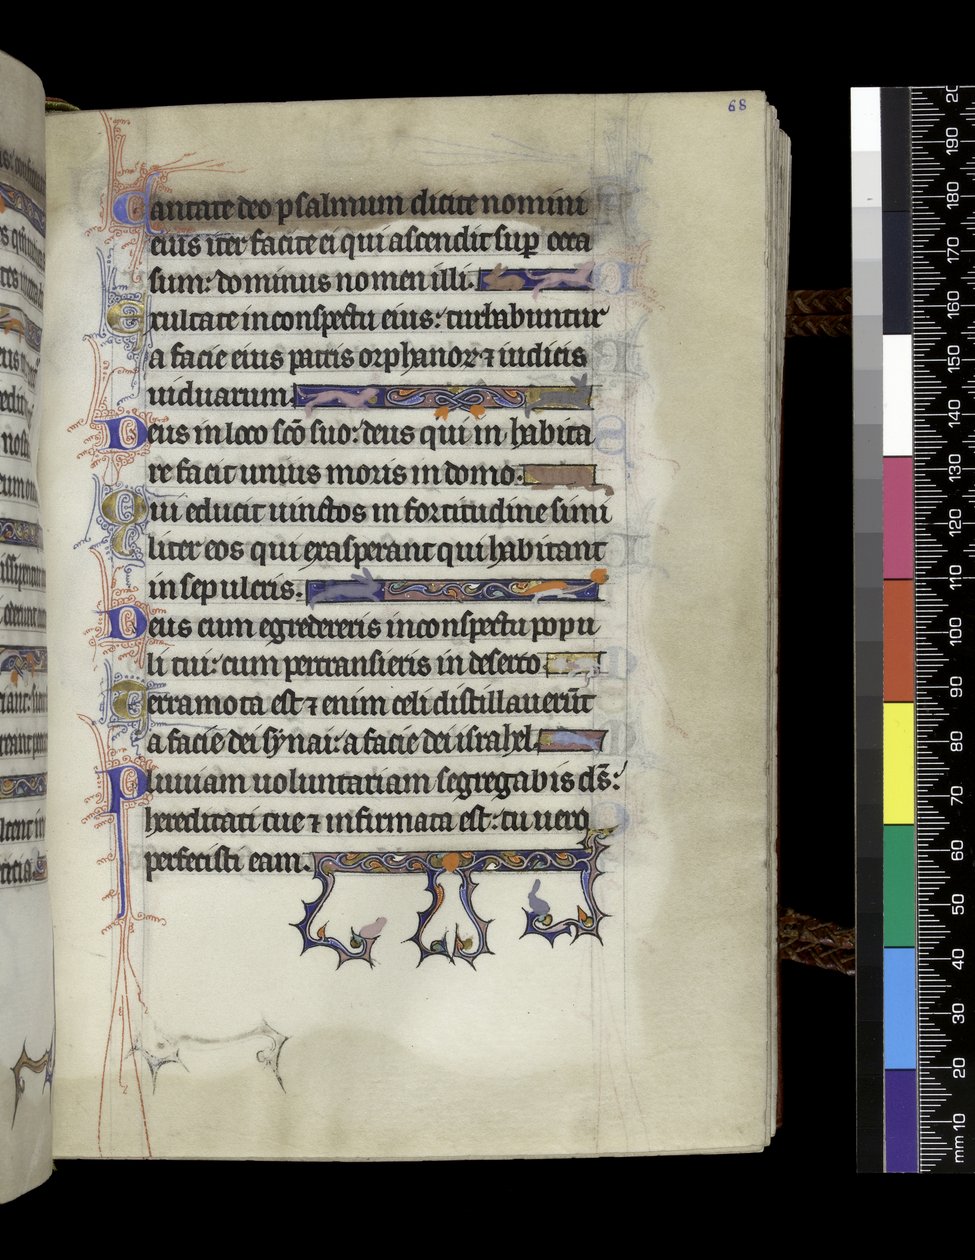 68
Cantate deo psalmum dicite nomini
eius iter facite ei qui ascendit sup̱ occa
sum: dominus nomen illi.
Exultate in conspectu eius: turbabuntur
a facie eius patris orphanoꝝ ⁊ iudicis
uiduarum.
Deus in loco scō suo: deus qui in habita
re facit unius moris in domo:
Qui educit uinctos in fortitudine simi
liter eos qui exasperant qui habitant
in sepulcris.
Deus cum egredereris in conspectu popu
li tui: cum pertransieris in deserto.
Terra mota est ⁊ enim celi distillauerūt
a facie dei synai: a facie dei israhel.
Pluuiam uoluntariam segregabis ds̄:
hereditati tue ⁊ infirmata est: tu uero
perfecisti eam.
mm 10 20 30 40 50 60 70 80 90 100 110 120 130 140 150 160 170 180 190